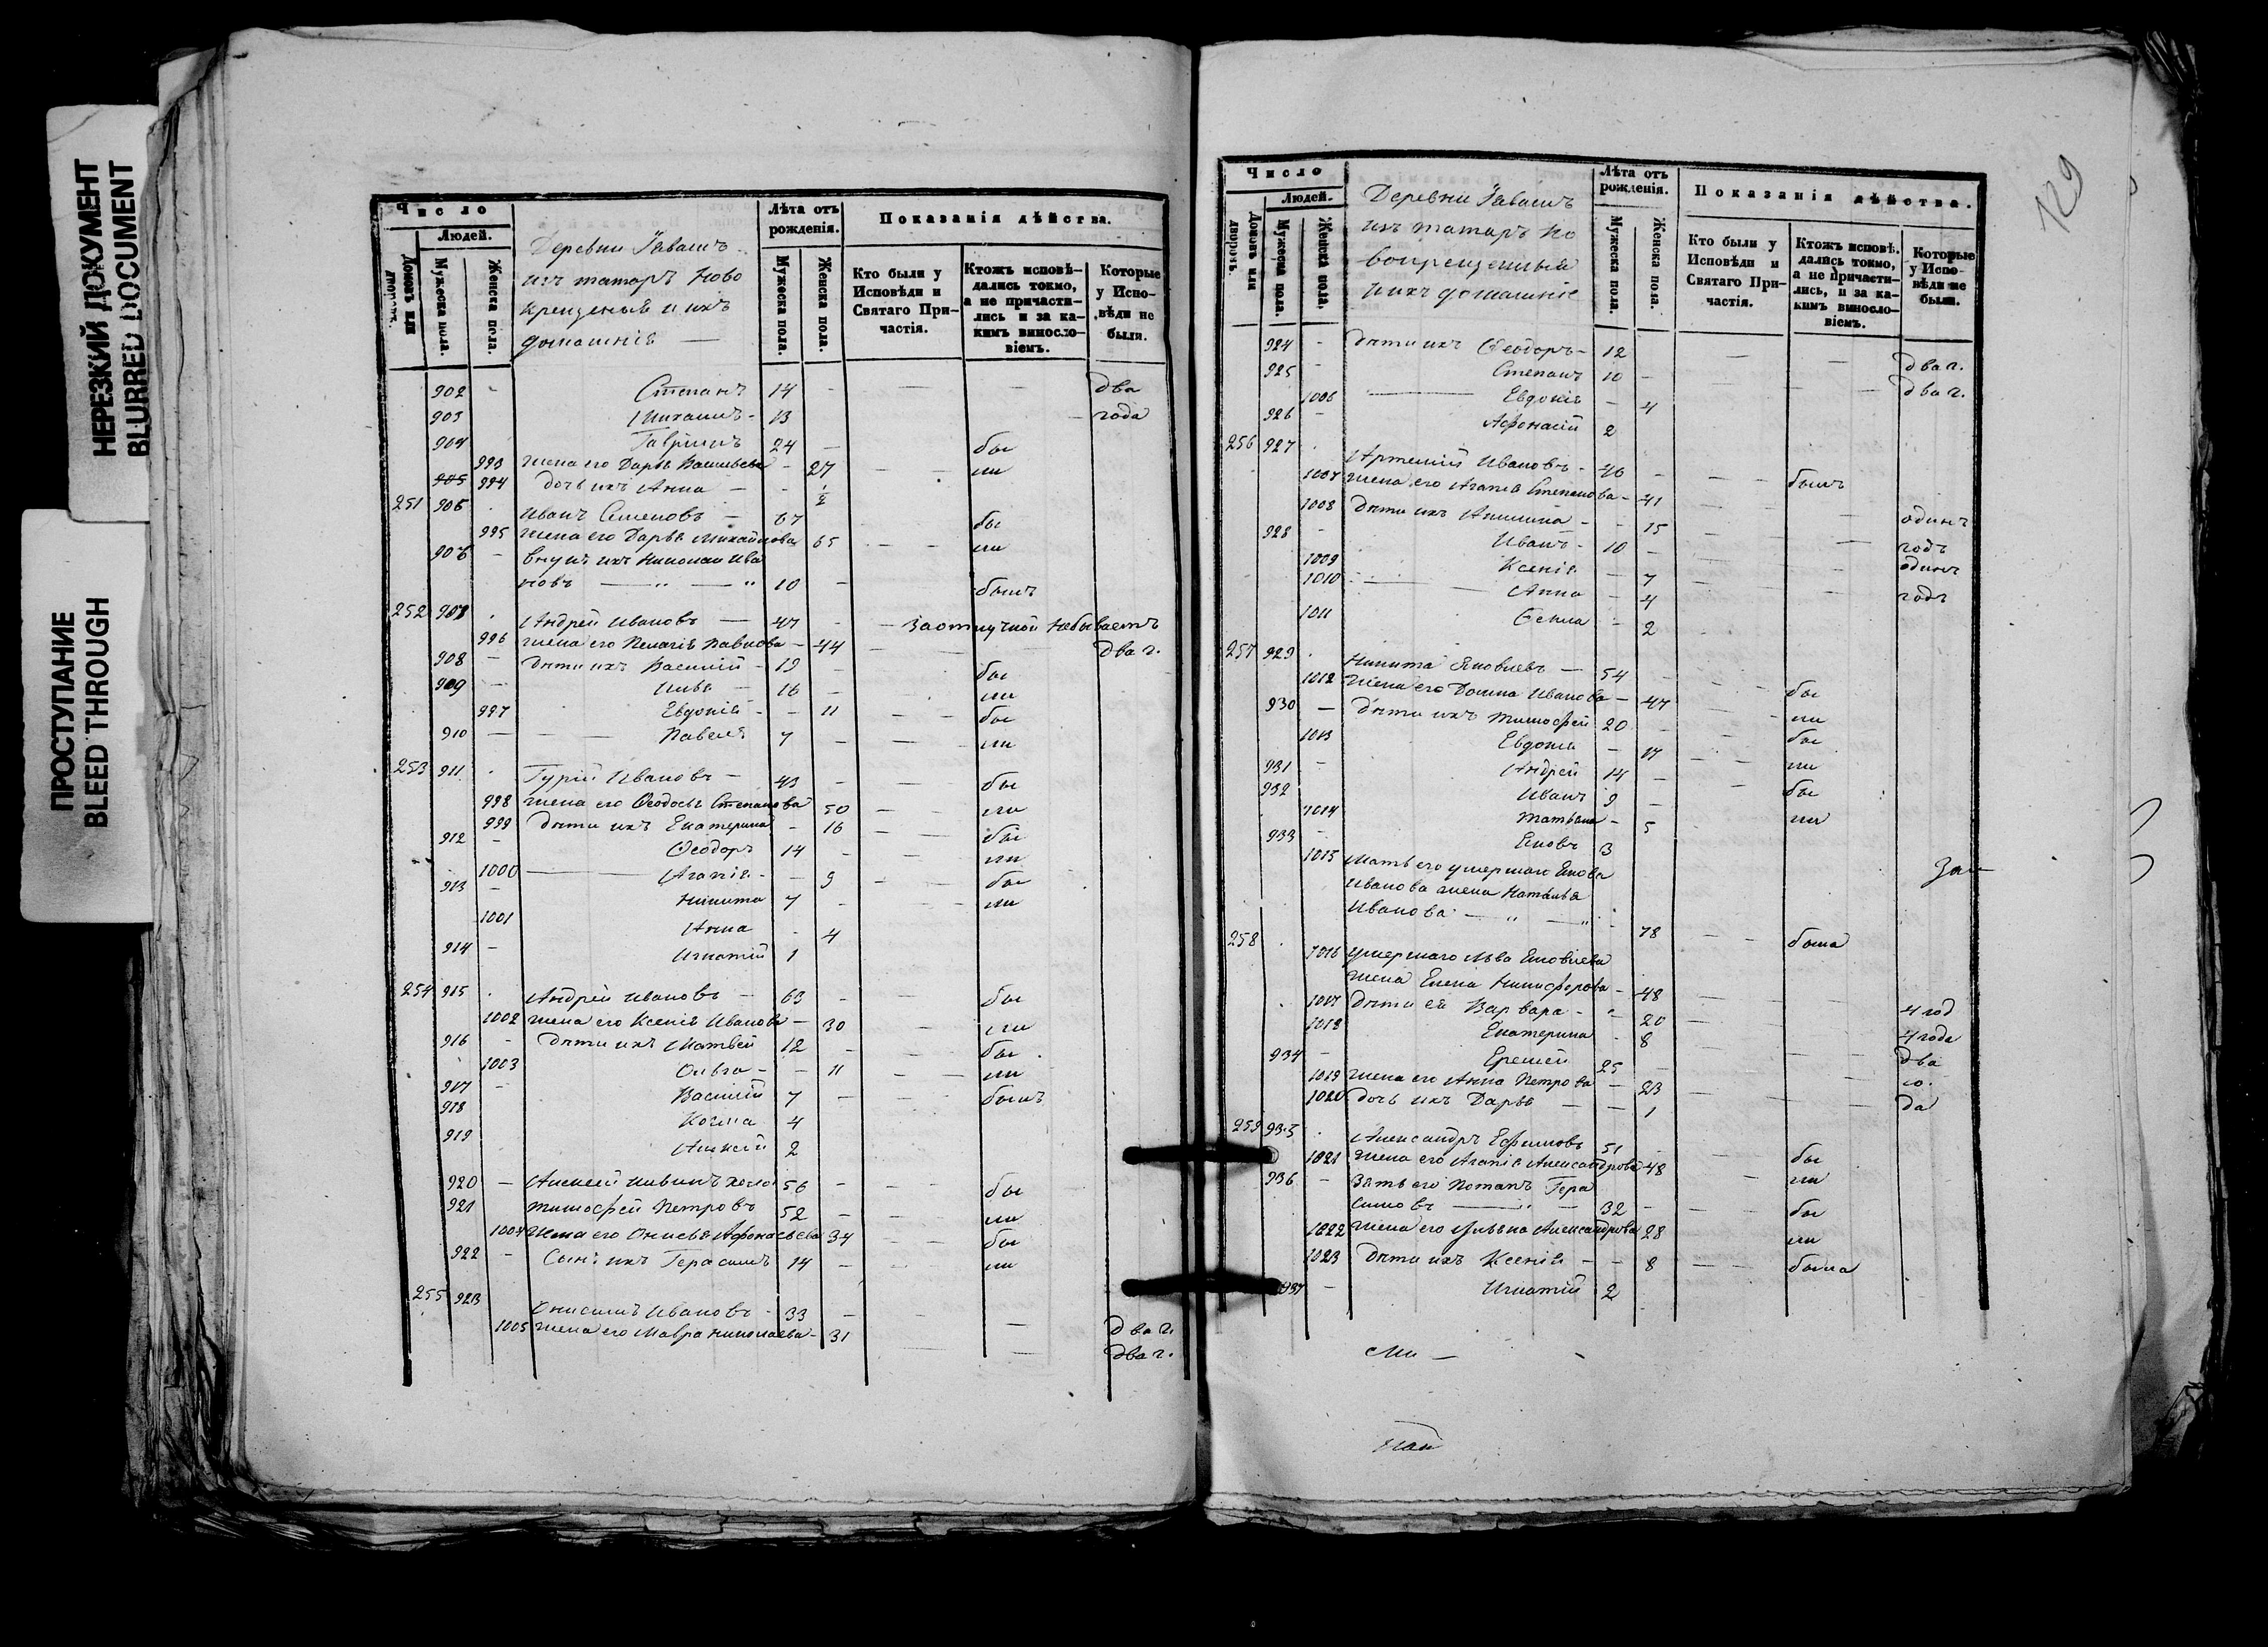 НЕРЕЗКИЙ ДОКУМЕНТ
BLURRED DOCUMENT
ПРОСТУПАНИЕ
BLEED THROUGH
Число
Людей.
Домовъ или дворовъ.
Мужеска пола.
Женска пола.
Деревни
изъ татаръ Ново
крещеныя и ихъ
домашнiе —
Лѣта отъ рожденiя.
Мужеска пола.
Женска пола.
Показанiя дѣйства.
Кто были у Исповѣди и Святаго Причастiя.
Ктожъ исповѣдались токмо, а не причастились и за какимъ винословiемъ.
Которые у Исповѣди не были.
902 - Степанъ 14 - — - два
903 Михаилъ - 13 - года
904 Гаврiилъ 24 — бы
993 жена его Дарья Васильева - 27 — — ли
905 994 дочь ихъ Анна — - 1/2
251 906 Иванъ Семеновъ — 67 бы
995 жена его Дарья Михайлова 65 — — ли
906 - внукъ ихъ Николай Ива
новъ — " — " 10 - былъ
252 907 Андрей Ивановъ — 47 - — За отлучкой небываетъ
996 жена его Пелагiя Павлова - 44 — два г.
908 - дѣти ихъ Василiй - 19 - бы
909 - 16 - ли
997 Евдокiя - - 11 — - бы
910 — Павелъ 7 — — ли
253 911 Гурiй Ивановъ — 43 - — бы
998 жена его Ѳеодосья Степанова 50 — ли
999 дѣти ихъ Екатерина - 16 — — бы
912 - Ѳеодоръ 14 - — ли
1000 — Агапiя - - 9 — - бы
913 - Никита 7 - — ли
1001 Анна - 4
914 - Игнатiй 1
254 915 Андрей Ивановъ — 63 - — бы
1002 жена его Ксенiя Иванова - 30 - ли
916 - дѣти ихъ Матвей 12 - — бы
1003 Ольга - - 11 — — ли
917 - Василiй 7 - — былъ
918 Козма 4
919 Алексей 2
920 - Алексей 56 - — бы
921 Тимофей Петровъ 52 - — ли
1004 жена его Афонасьева 34 — бы
922 - Сынъ ихъ Герасимъ 14 - — ли
255 923 Онисимъ Ивановъ - 33 - — два г.
1005 жена его Мавра Николаева - 31 — — два г.
129
Число
Людей.
Домовъ или дворовъ.
Мужеска пола.
Женска пола.
Деревни
изъ татаръ Но
вокрещеныя
и ихъ домашнiе
Лѣта отъ рожденiя.
Мужеска пола.
Женска пола.
Показанiя дѣйства.
Кто были у Исповѣди и Святаго Причастiя.
Ктожъ исповѣдались токмо, а не причастились, и за какимъ винословiемъ.
Которые у Исповѣди не были.
924 - дѣти ихъ Ѳеодоръ - 12 — — два г.
925 - Степанъ 10 - — — два г.
1006 — Евдокiя - 4
926 - Афонасiй 2
256 927 Артемiй Ивановъ - 46 - — былъ
1007 жена его Агапiя Степанова - 41 — — одинъ
1008 дѣти ихъ Акилина - - 15 — — годъ
928 - Иванъ - 10 - — одинъ
1009 Ксенiя - 7 — — годъ
1010 — Анна - 4
1011 - 2
257 929 Никита Яковлевъ — 54 - — бы
1012 жена его Домна Иванова - 47 — — ли
930 — дѣти ихъ Тимофей 20 - бы
1013 Евдокiя - 17 — ли
931 - Андрей 14 - — бы
932 Иванъ 9 - ли
1014 Татьяна - 5
933 - Яковъ 3
1015 Мать его умершаго Якова
Иванова жена Наталья
Иванова - " — " - 78 — - была
За—
258 1016 умершаго Льва Яковлева
жена Елена Никифорова - 48 — — 4 год
1017 дѣти ея Варвара - - 20 — — 4 года
1018 Екатерина - 8 — — два
934 - Еремей 25 - — го-
1019 жена его Анна Петрова — 23 — — да
1020 дочь ихъ Дарья — — 1
259 935 Александръ Ефимовъ 51 - бы
1021 жена его Агапiя Александрова 48 — — ли
936 - Зять его Потапъ Гера
симовъ — " — 32 - — бы
1022 жена его Ульяна Александрова 28 — ли
1023 дѣти ихъ Ксенiя - - 8 — - была
937 - Игнатiй 2